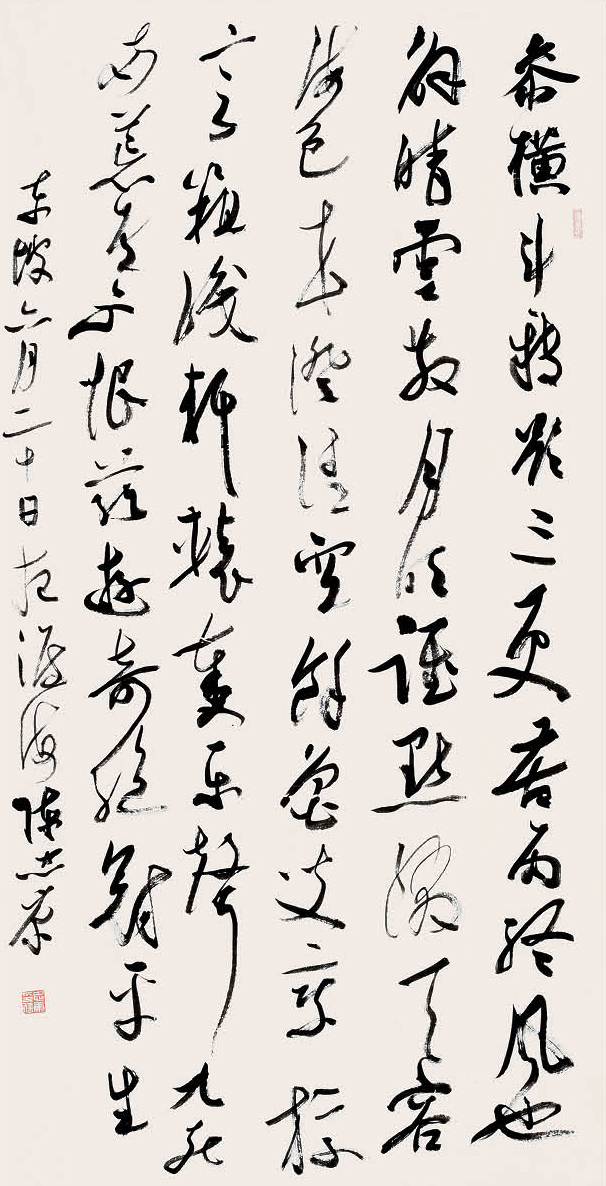 參橫斗轉欲三更苦雨終風也
解晴雲散月明誰點綴天容
海色本澄清空餘魯叟乘桴
意粗識軒轅奏樂聲九死
南荒吾不恨茲遊奇絕冠平生
東坡六月二十日夜渡海陳忠康